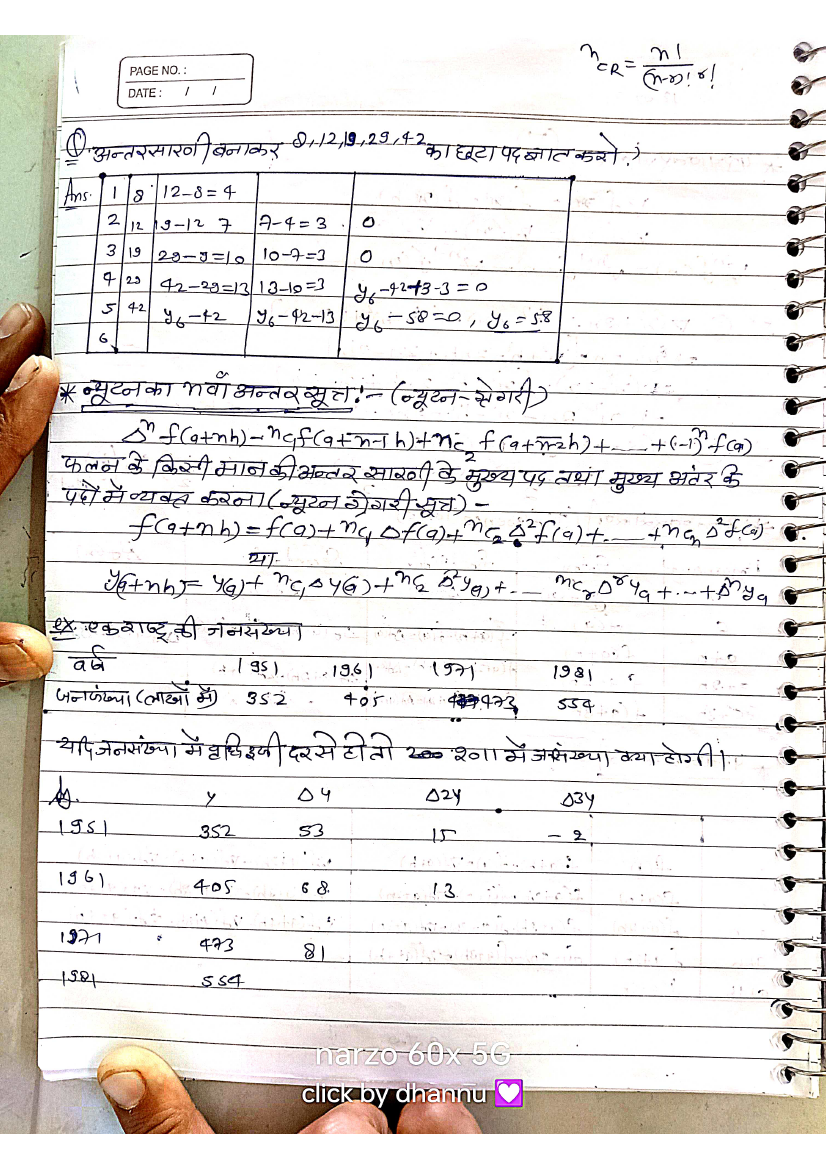 nCR = n! / (n-r)! r!
PAGE NO. :
DATE : / /
① अन्तर सारणी बनाकर 8,12,19,29,42 का छटा पद ज्ञात करो ?
Ans. 1 8 12-8=4
2 12 19-12 7 7-4=3 0
3 19 29-9=10 10-7=3 0
4 29 42-29=13 13-10=3 y6-42-13-3=0
5 42 y6-42 y6-42-13 y6-58=0, y6=58
6
* न्यूटन का nवाँ अन्तर सूत्र :- (न्यूटन-ग्रेगरी)
Δn f(a+nh)-nc1f(a+n-1h)+nc2 f(a+n-2h)+.....+(-1)n f(a)
फलन के किसी मान की अन्तर सारणी के मुख्य पद तथा मुख्य अंतर के
पदों में व्यक्त करना (न्यूटन ग्रेगरी सूत्र) -
f(a+nh) = f(a)+nc1 Δf(a)+nc2 Δ2f(a)+.....+ncn Δ2f(a)
या
y(a+nh)= y(a)+nc1Δy(a)+nc2 Δ2y(a)+... ncrΔrya+...+Δnya
ex. एक राष्ट्र की जनसंख्या
वर्ष 1951 1961 1971 1981
जनसंख्या (लाखों में) 352 405 473 554
यदि जनसंख्या में वृद्धि इसी दर से हो तो 2011 में जनसंख्या क्या होगी।
y Δy Δ2y Δ3y
1951 352 53 15 -2
1961 405 68 13
1971 473 81
1981 554
narzo 60x 5G
click by dhannu 💟